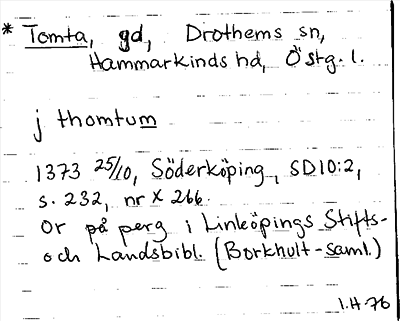 * Tomta, gd, Drothems sn,
Hammarkinds hd, Östg. l.
j thomtum
1373 25/10, Söderköping, SD10:2,
s. 232, nr X 266.
Or på perg i Linköpings Stifts-
och Landsbibl. (Borkhult-saml.)
I.H-76